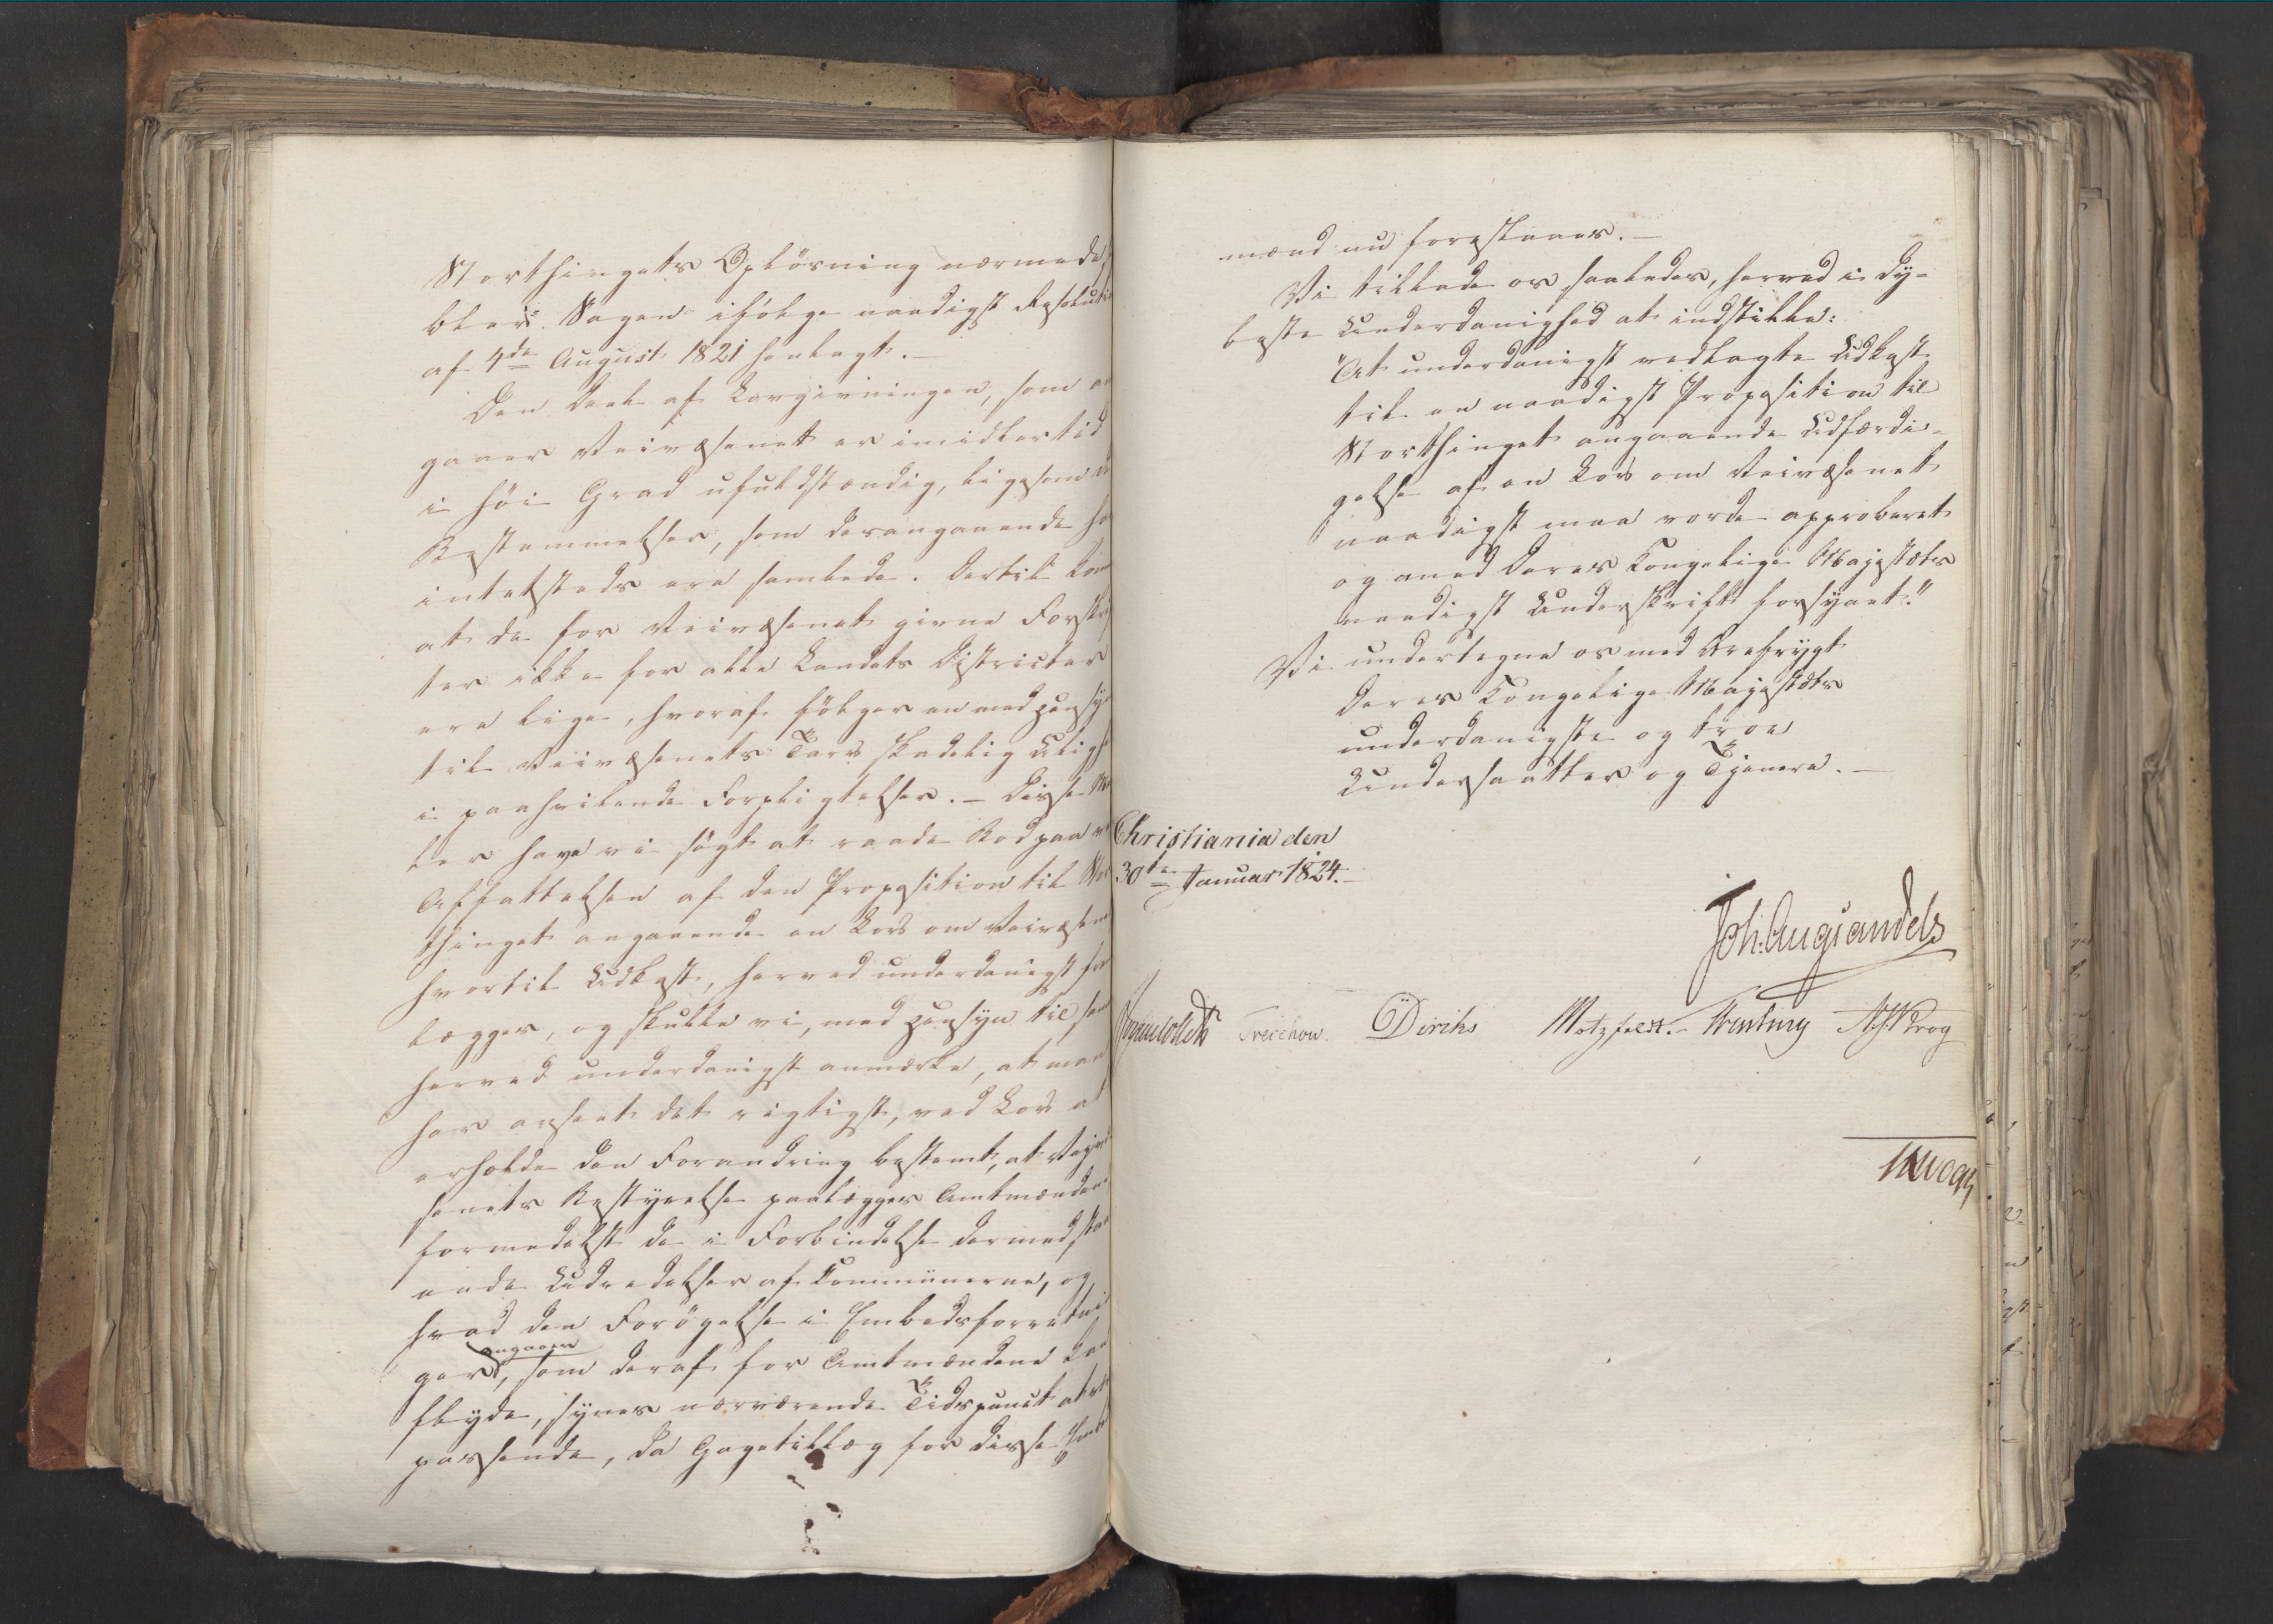 Storthingets Opløsning nærmede,
blev Sagen ifølge naadigst Resoluti
af 4de August 1821 henlagt.
Den Deel af Lovgivningen, som a
gaaer Veivæsenet er imidlertid
i høi Grad ufuldstændig, ligesom de
Bestemmelser, som desangaaende ha
intetsteds ere samlede. Dertil kom
at de for Veivæsenet givne Forskri
ter ikke for alle Landets Districter
ere lige, hvoraf følger en med Hensy
til Veivæsenets Tarv skadelig Uligh
i paahvilende Forpligtelser. – Disse Ma
ler have vi søgt at raade Bod paa v
Affattelsen af den Proposition til Stor
thinget angaaende en Lov om Veivæsen
hvortil Udkast, herved underdanigst fre
lægges, og skulle vi, med Hensyn til sam
herved underdanigst anmærke, at man
har anseet det rigtigst, ved Lov at
erholde den Forandring bestemt, at Veivæ
senets Bestyrelse paalægges Amtmændene
formedelst de i Forbindelse dermed staa
ende Udredelser af Communerne, og
hvad den Forøgelse i Embedsforretnin
angaaer
ger, som deraf for Amtmændene kan
flyde, synes nærværende Tidspunct at v
passende, da Gagetillæg for disse Embed
mænd nu forestaaer. –
Vi tillade os saaledes, herved i dy-
beste Underdanighed at indstille:
"At underdanigst vedlagte Udkast
til en naadigst Proposition til
Storthinget angaaende Udfærdi-
gelse af en Lov om Veivæsenet
naadigst maa vorde approberet
og med Deres Kongelige Majestæts
naadigst Underskrift forsynet."
Vi undertegne os med Ærefrygt
Deres Kongelige Majestæts
underdanigste og troe
Undersaatter og Tjenere. –
Christiania den
30te Januar 1824. –
Joh: Aug: Sandels
Treschow. Diriks Motzfeldt. Krog